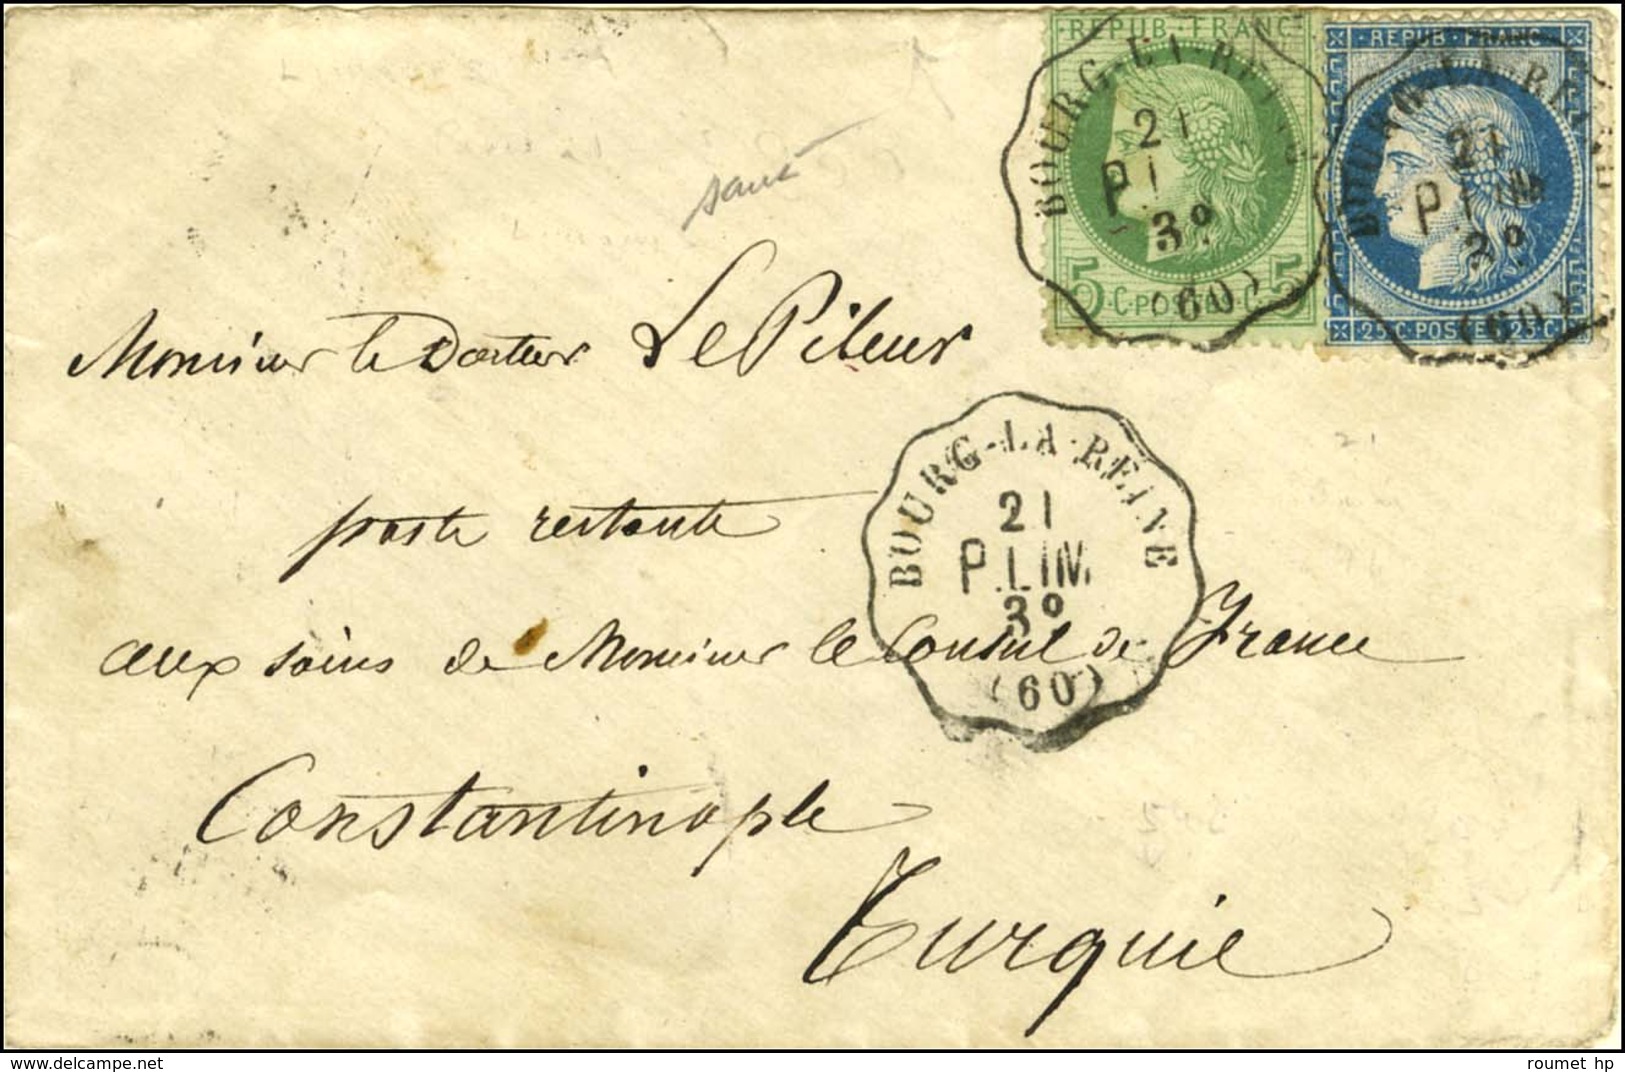 REPUB · FRANC
5 C · POSTES · C · 5
REPUB · FRANC
25 C · POSTES · 25 C
BOURG-LA-REINE
21
3º
(60)
BOURG-LA-REINE
21
P. LIM
3º
(60)
Monsieur le Docteur Le Pileur
poste restante
BOURG-LA-REINE
21
P. LIM
3º
(60)
aux soins de Monsieur le Consul de France
Constantinople
Turquie
www.delcampe.net
roumet hp